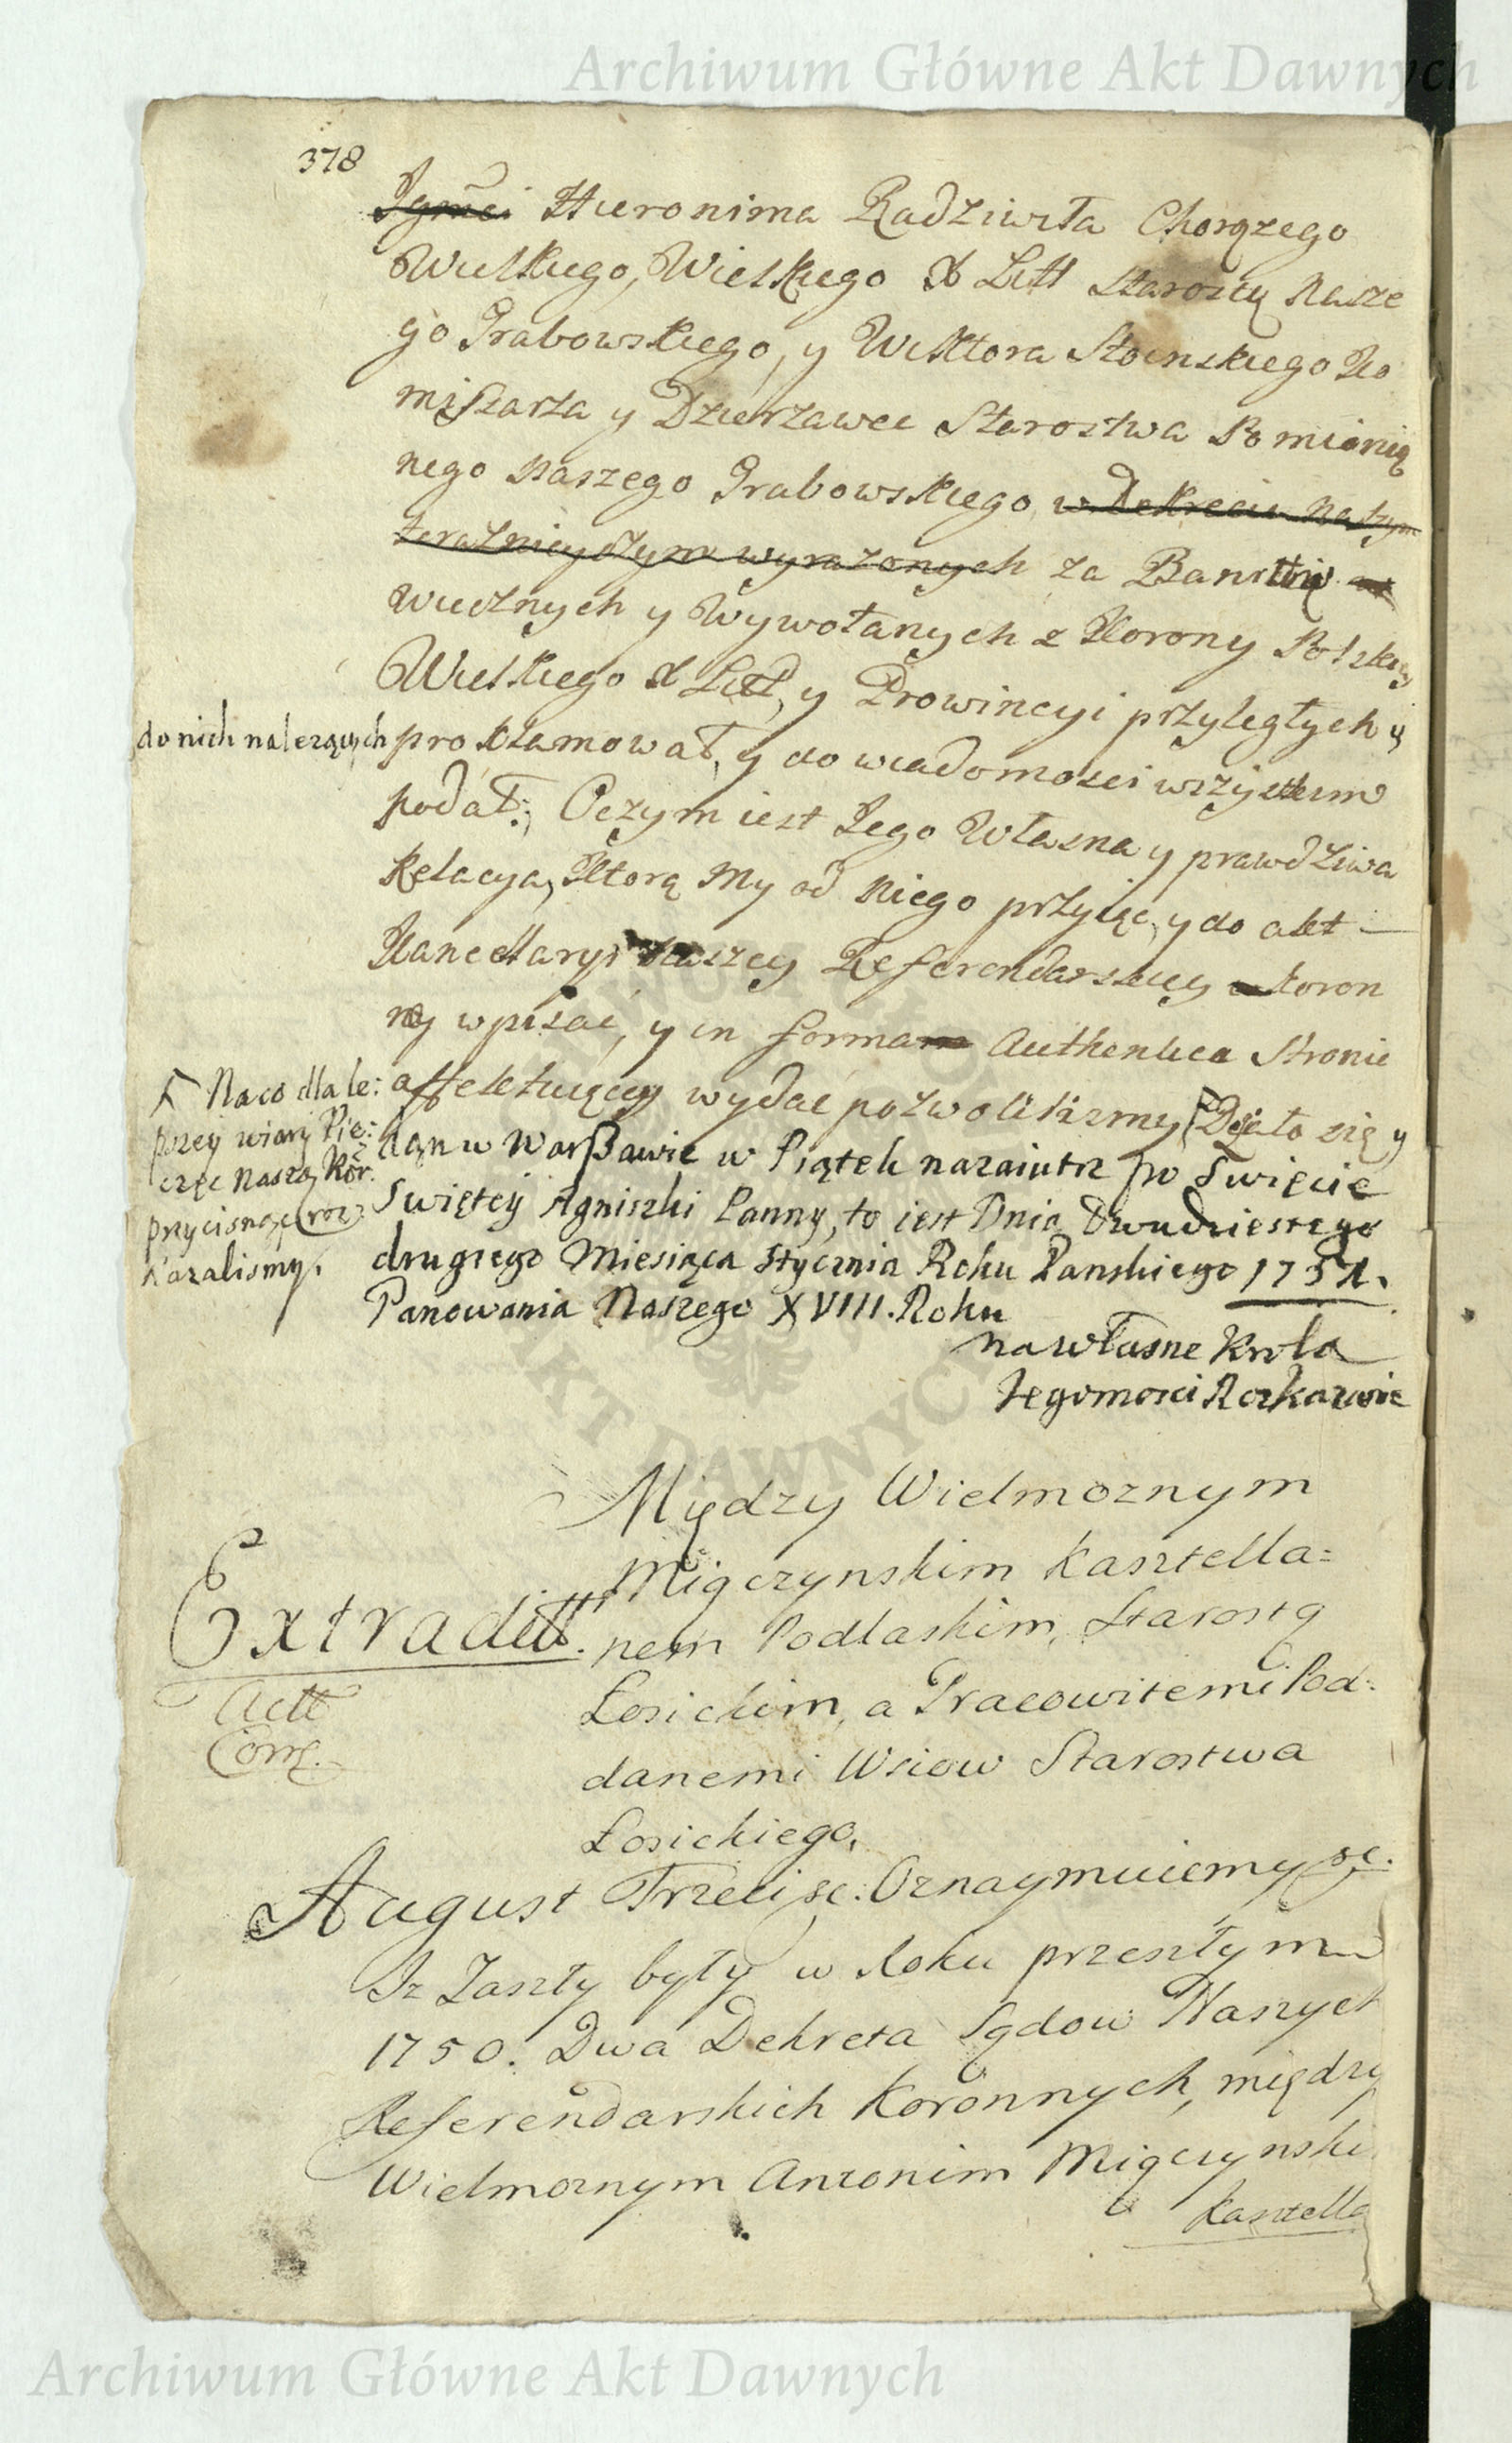 Archiwum Główne Akt Dawnych
378
Jgmci Hieronima Radziwiła Chorązego
Wielkiego, Wielkiego X Litt Starostę Nasze
go Grabowskiego, y Wiktora Stoinskiego Ko
missarza y Dzierzawce Starostwa Pomienio
nego Naszego Grabowskiego w Dekrecie Naszym
teraznieyszym wyrazonych za Bannitow
wiecznych y Wywołanych z Korony Polskiey
Wielkiego X Litt, y Prowincyi przyległych y
do nich nalezących proklamował, y do wiadomosci wszystkim
podał; Oczym iest Jego Własna y prawdziwa
Relacya, Ktorą My od Niego przyiąc, y do akt
Kancellaryi Naszey Referendarskiey Koron
ney wpisać, y in forma Authentica Stronie
affektuiącey wydać pozwolilismy, Działo się y
Na co dla le:
pszey wiary Pie:
częc Naszą Kor.
przycisnąc roz:
kazalismy.
dan w Warszawie w Piątek nazaiutrz po Swięcie
Swiętey Agniszki Panny, to iest Dnia Dwudziestego
drugiego Miesiąca Stycznia Roku Panskiego 1751.
Panowania Naszego XVIII. Roku
na własne Krola
Jegomosci Rozkazanie
Między Wielmoznym
Miączynskim Kasztella=
nem Podlaskim, Starostą
Łosickim, a Pracowitemi Pod=
danemi Wsiow Starostwa
Łosickiego.
Extradit.
Actt
Corr.
August Trzeci &c. Oznaymuiemy &c.
Iz Zaszły były w Roku przeszłym
1750. Dwa Dekreta Sądow Naszych
Referendarskich Koronnych, między
Wielmoznym Antonim Miączynski
Kasztella
Archiwum Główne Akt Dawnych